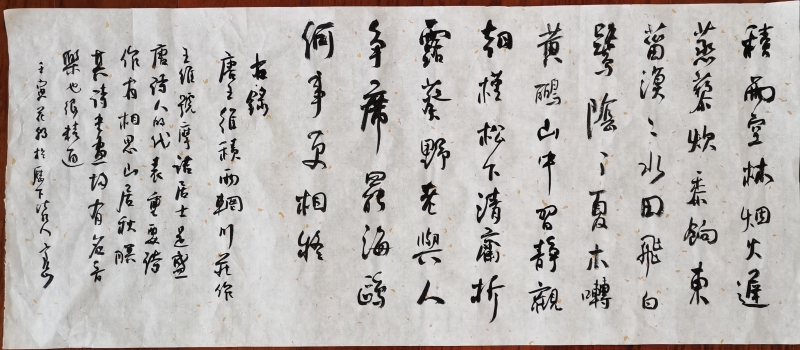 積雨空林烟火遲
蒸藜炊黍餉東
菑漠々水田飛白
鷺陰々夏木囀
黄鸝山中習静觀
朝槿松下清齋折
露葵野老與人
争席罷海鷗
何事更相疑
右錄
唐王維積雨輞川莊作
王維號摩詰居士是盛
唐詩人的代表重要詩
作有相思山居秋暝
其詩書畫均有名音
樂也很精通
壬寅於歷下